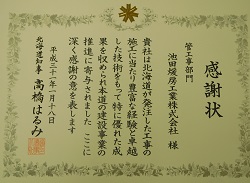 感謝状
管工事部門
池田煖房工業株式会社 様
貴社は北海道が発注した工事の
施工に当たり豊富な経験と卓越
した技術をもって特に優れた成
果を収められ本道の建設事業の
推進に寄与されました ここに
深く感謝の意を表します
平成三十一年一月十八日
北海道知事 高橋はるみ